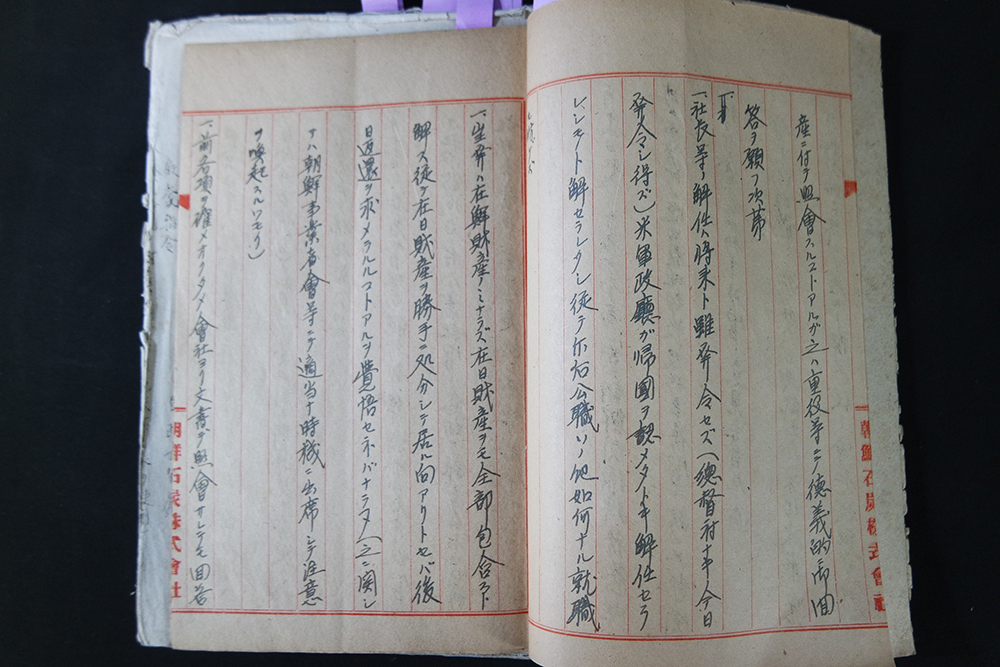 産ニ付テ照會スルコトアルガ之ハ重役等ニテ徳義的御回
答ヲ願フ次第
一、社長等ノ解任ハ将来ト雖発令セズ（總督府ナキ今日
発令シ得ズ）米軍政廳が帰國ヲ認メタトキ解任セラ
レシモノト解セラレタシ従テ公職ソノ他如何ナル就職
一、生発ハ在鮮財産ノミナラズ在日財産ヲモ全部包含スト
解ス従テ在日財産ヲ勝手ニ処分シテ居ル向アリトセバ後
日返還ヲ求メラルルコトアルヲ覺悟セネバナラヌ（之ニ関シ
テハ朝鮮事業者會等ニテ適当ナ時機ニ出席シテ注意
ヲ喚起スルツモリ）
一、前各項ヲ確メオクタメ會社ヨリ文書デ照會サレテモ回答
朝鮮石炭株式會社
朝鮮石炭株式會社